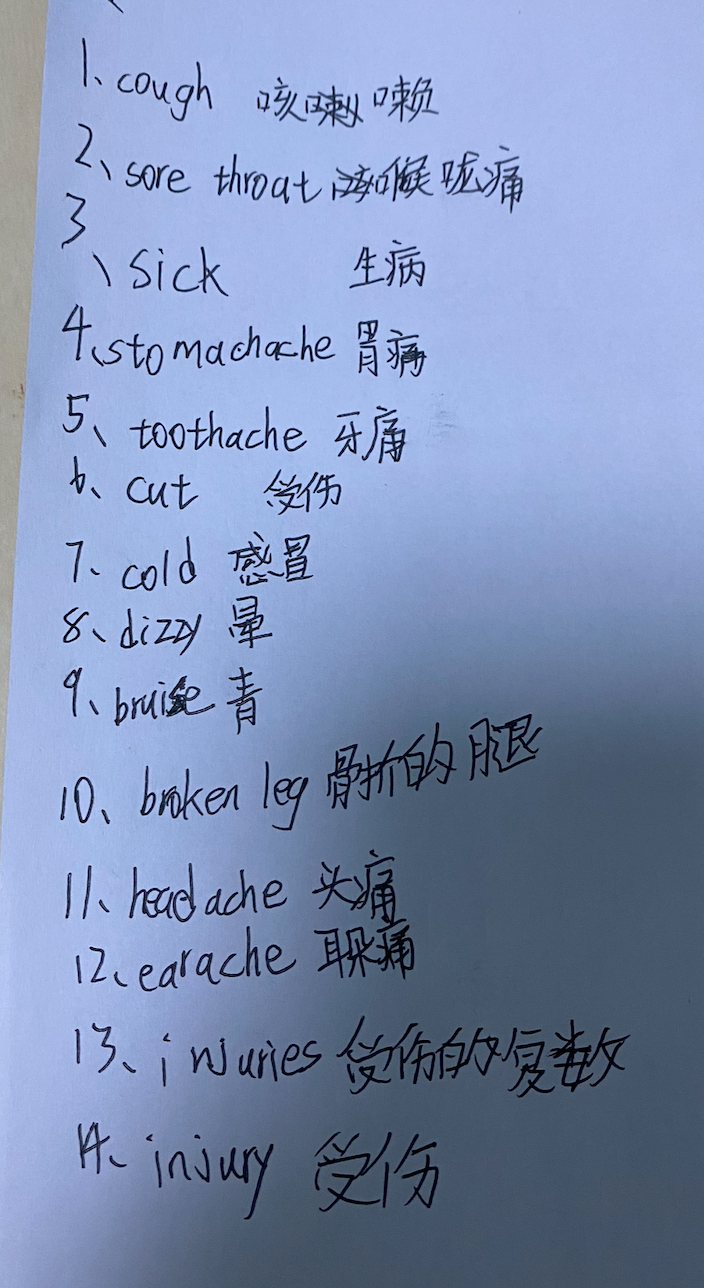 1、cough 咳嗽 嗽
2、sore throat 喉咙痛
3
、sick 生病
4、stomachache 胃痛
5、toothache 牙痛
6、cut 受伤
7、cold 感冒
8、dizzy 晕
9、bruise 青
10、broken leg 骨折的腿
11、headache 头痛
12、earache 耳朵痛
13、injuries 受伤的复数
14、injury 受伤